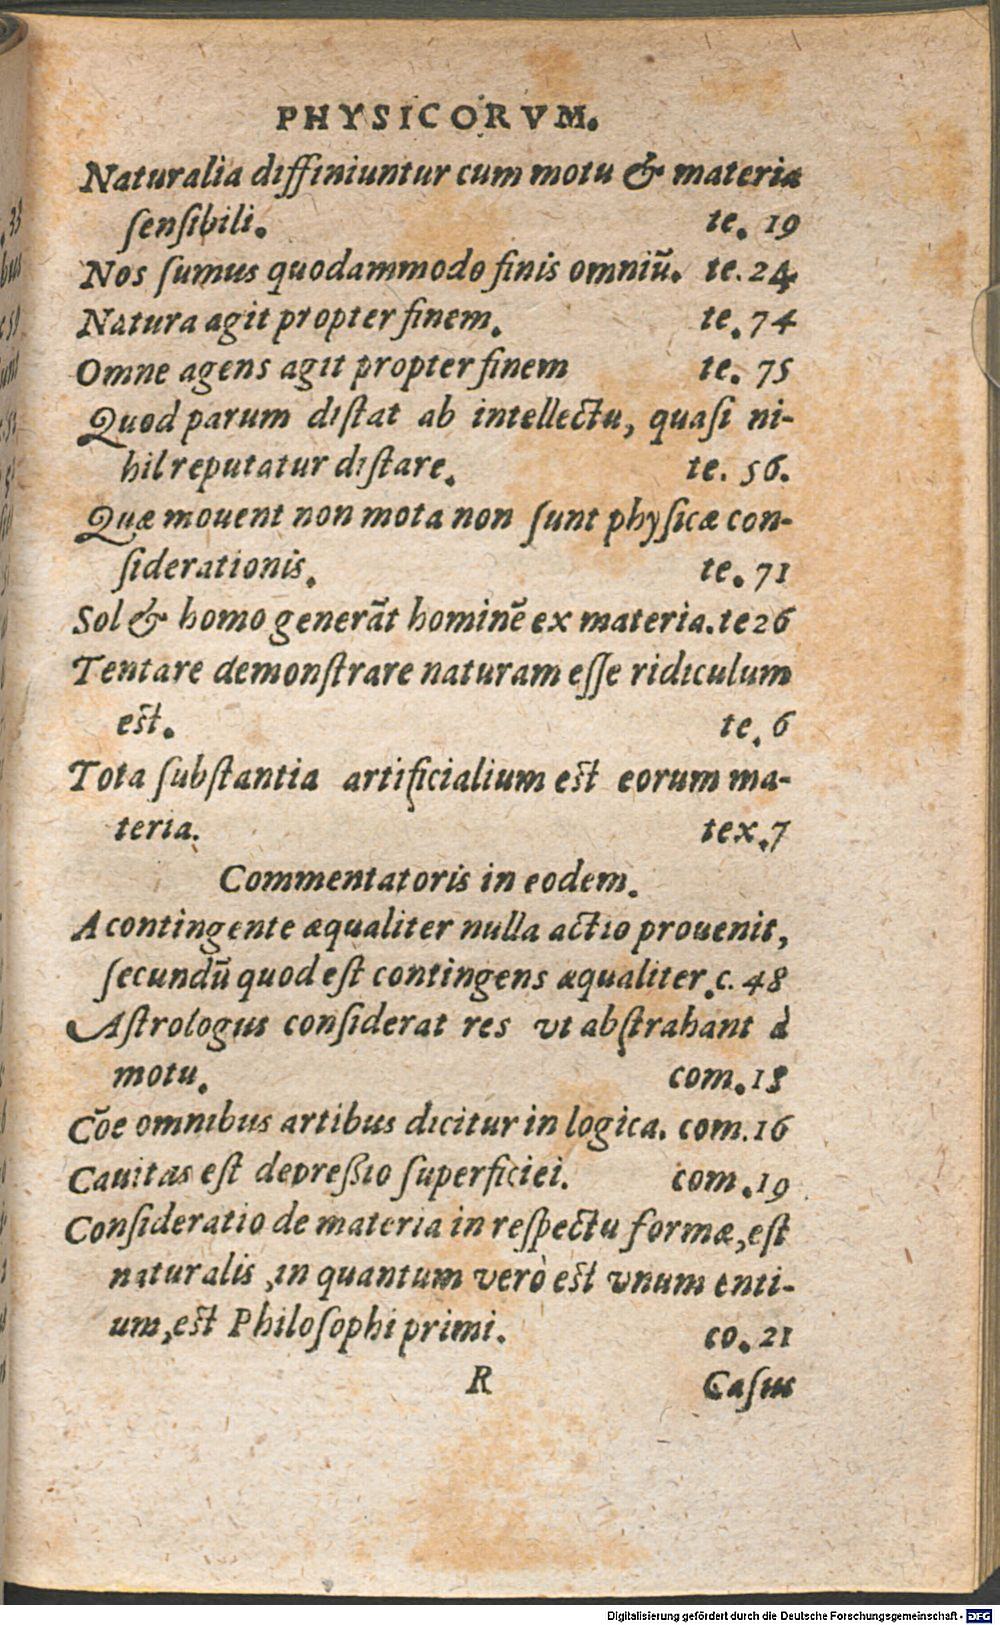 PHYSICORVM.
Naturalia diffiniuntur cum motu & materia
ſenſibili. te. 19
Nos ſumus quodammodo finis omniū. te. 24
Natura agit propter finem. te. 74
Omne agens agit propter finem te. 75
Quod parum diſtat ab intellectu, quaſi ni-
hil reputatur diſtare. te. 56.
Quæ mouent non mota non ſunt phyſicæ con-
ſiderationis. te. 71
Sol & homo generāt hominē ex materia. te 26
Tentare demonſtrare naturam eſſe ridiculum
eſt. te. 6
Tota ſubſtantia artificialium eſt eorum ma-
teria. tex. 7
Commentatoris in eodem.
A contingente æqualiter nulla actio prouenit,
ſecundū quod eſt contingens æqualiter. c. 48
Aſtrologus conſiderat res vt abſtrahant à
motu. com. 18
Cōe omnibus artibus dicitur in logica. com. 16
Cauitas eſt depreßio ſuperficiei. com. 19
Conſideratio de materia in reſpectu formæ, eſt
naturalis, in quantum verò eſt vnum enti-
um, eſt Philoſophi primi. co. 21
R Caſus
Digitalisierung gefördert durch die Deutsche Forschungsgemeinschaft - DFG